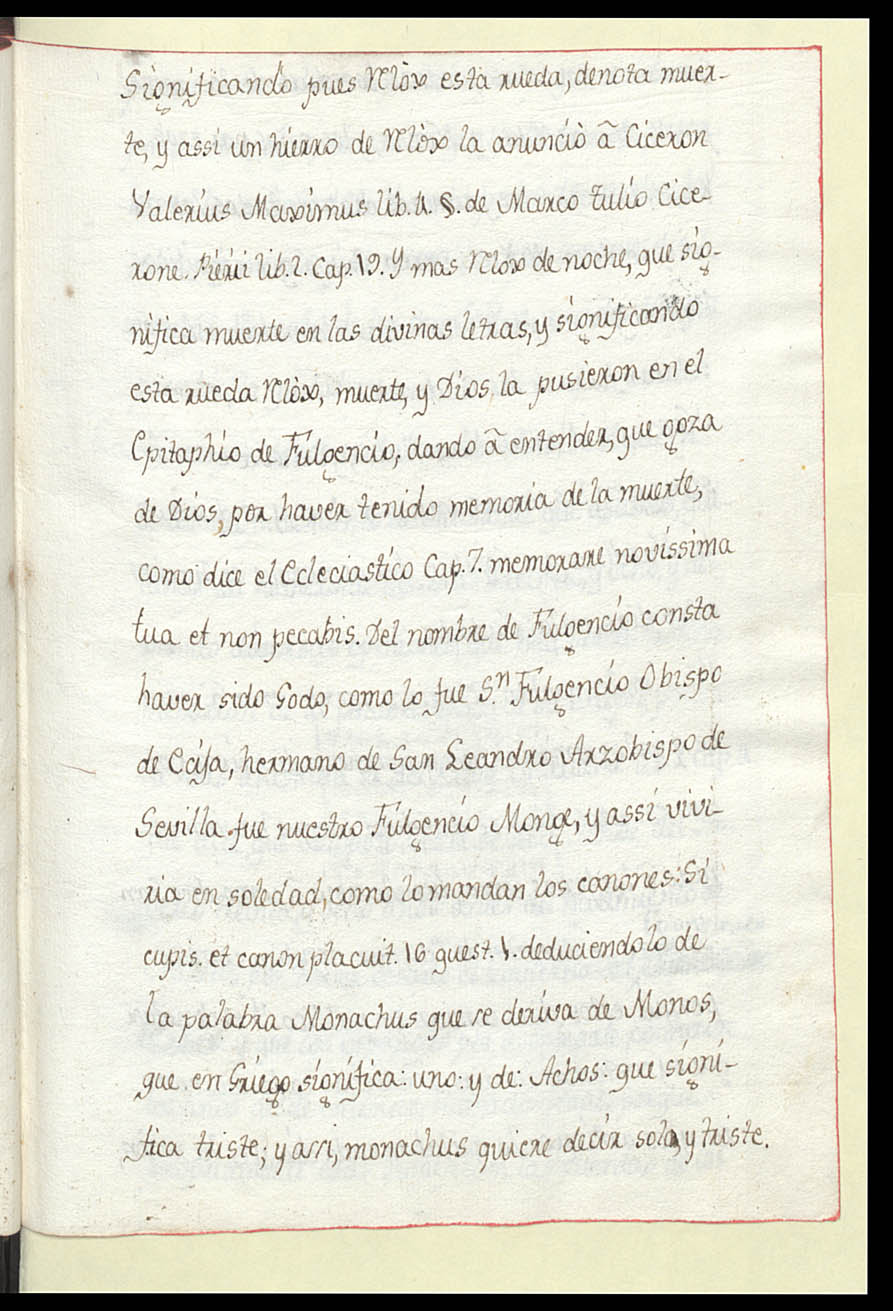 Significando pues Relòx esta rueda, denota muer-
te, y assi un hierro de Relòx la anunciò ã Ciceron
Valerius Maximus lib. 4. §. de Marco tulio Cice-
rone. Pierii lib. 2. Cap. 19. Y mas Relox de noche, que sig-
nifica muerte en las divinas letras, y significando
esta rueda Relòx, muerte, y Dios, la pusieron en el
Epitaphio de Fulgencio, dando ã entender, que goza
de Dios, por haver tenido memoria de la muerte,
como dice el Ecleciastico Cap. 7. memorare novissima
tua et non pecabis. Del nombre de Fulgencio consta
haver sido Godo, como lo fue S.ⁿ Fulgencio Obispo
de Ecija, hermano de San Leandro Arzobispo de
Sevilla. fue nuestro Fulgencio Monge, y assi vivi-
ria en soledad, como lo mandan los canones: Si
cupis. et canon placuit. 16 quest. 1. deduciendolo de
la palabra Monachus que se deriva de Monos,
que en Griego significa: uno: y de: Achos: que signi-
fica triste; y assi, monachus quiere decir solo, y triste.